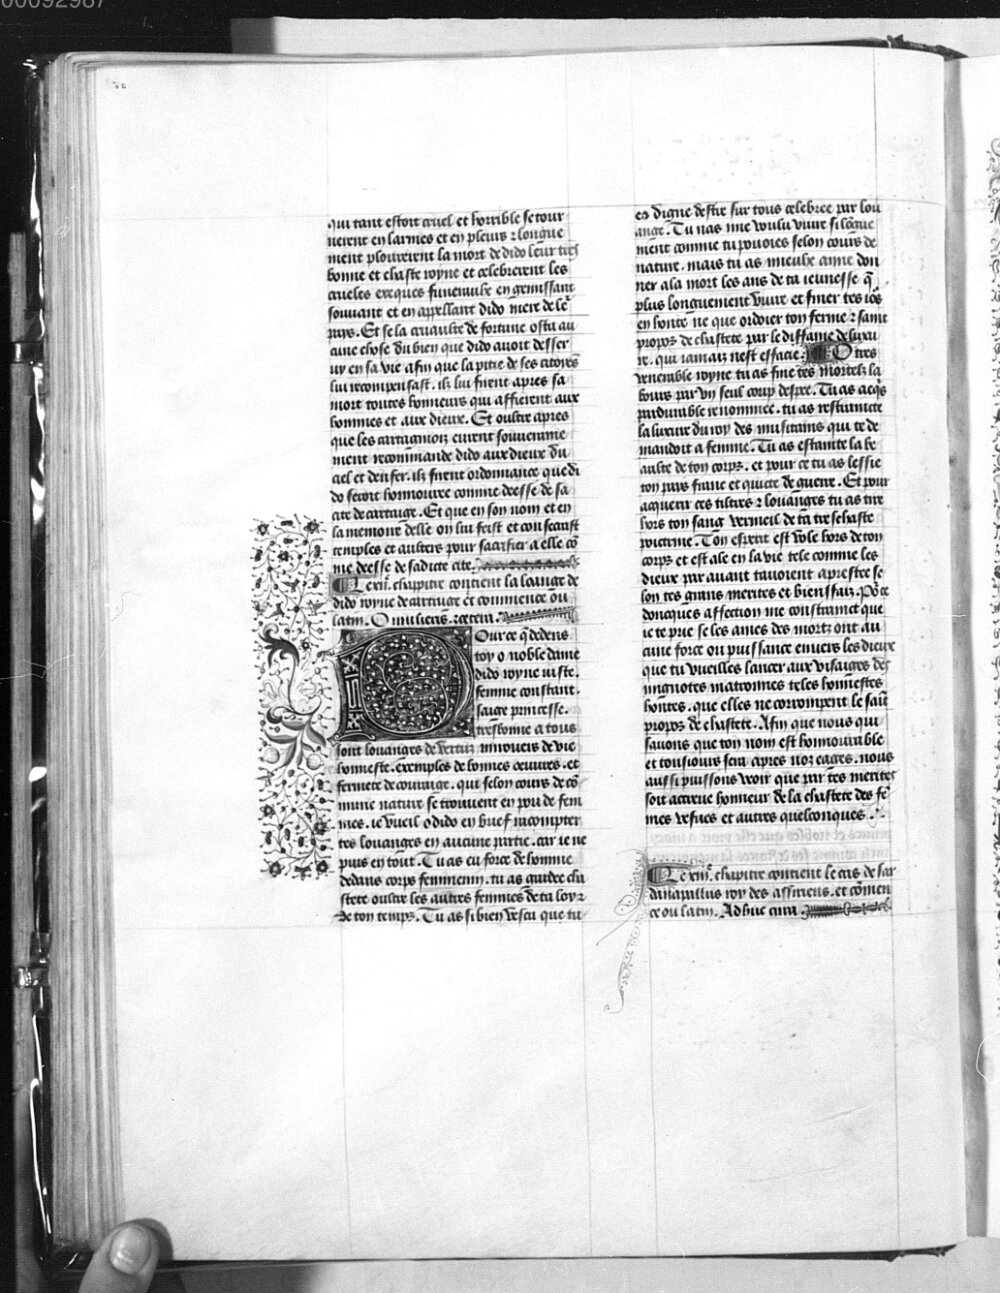 00092987
qui tant estoit cruel et horrible se tour
nerent en larmes et en pleurs ⁊ longue
ment plourerent la mort de dido leur tres
bonne et chaste royne et celebrerent les
crueles exeques funeraulx en gemissant
souuant et en appellant dido mere de le
pays. Et se la cruaulte de fortune osta au
cune chose du bien que dido auoit desser
uy en sa vie afin que la pitie de ses citoyes
lui recompensast. ilz lui firent apres sa
mort toutes honneurs qui affierent aux
hommes et aux dieux. Et oultre apres
que les cartaginois eurent souueraine
ment recommande dido aux dieux du
ciel et denfer. ilz firent ordonnance que di
do seroit honnouree comme deesse de sa
cite de cartaige. Et que en son nom et en
la memoire delle on lui feist et consecrast
temples et aultiers pour sacrifier a elle co
me deesse de sadicte cite.
Le xiie. chapitre contient la loange de
dido royne de cartaige et commence ou
latin. O mulieris. et cetera.
Pour ce q dedens
toy o noble dame
dido royne iuste.
femme constant.
saige princesse.
tresbonne a tous
sont louanges de vertuz mirouers de vie
honneste. exemples de bonnes oeuures. et
fermete de couraige. qui selon cours de co
mune nature se treuuent en pou de fem
mes. ie vueil o dido en brief racompter
tes louanges en aucune partie. car ie ne
puis en tout. Tu as eu force de homme
dedans corps femmenin. tu as gardee cha
stete oultre les autres femmes de ta loy ⁊
de ton temps. Tu as si bien vescu que tu
es digne destre sur tous celebree par lou
ange. Tu nas mie voulu viure si longue
ment comme tu pouoies selon cours de
nature. mais tu as mieulx ame don
ner a la mort les ans de ta ieunesse q
plus longuement viure et finer tes iors
en honte ne que ordoier ton ferme ⁊ saint
propos de chastete par le diffame de luxu
re. qui iamaiz nest effacie. O tres
venerable royne tu as fine tes mortelz la
bours par vn seul coup despee. Tu as acqs
pardurable renommee. tu as restraincte
la luxure du roy des musitains qui te de
mandoit a femme. Tu as estainte la be
aulte de ton corps. et pour ce tu as lessie
ton pays franc et quicte de guerre. Et pour
acquerir ces tiltres ⁊ louanges tu as tire
hors ton sang vermeil de ta tre schaste
poictrine. Ton esperit est vole hors de ton
corps et est ale en la vie tele comme les
dieux par auant tauoient aprestee se
lon tes grans merites et bienffaiz. Po ce
doncques affection me constraint que
ie te prie se les ames des mortz ont au
cune force ou puissance enuers les dieux
que tu vueilles lancer aux visaiges des
mignotes matronnes teles honnestes
hontes. que elles ne corrompent le saint
propos de chastete. Afin que nous qui
sauons que ton nom est honnourable
et tousiours sera apres noz eages. nous
aussi puissons veoir que par tes merites
soit accreue honneur de la chastete des fe
mes vefues et autres quelconques.
Le xiiie. chapitre contient le cas de sar
danapallus roy des assiriens. et comen
ce ou latin. Ad huc cura.